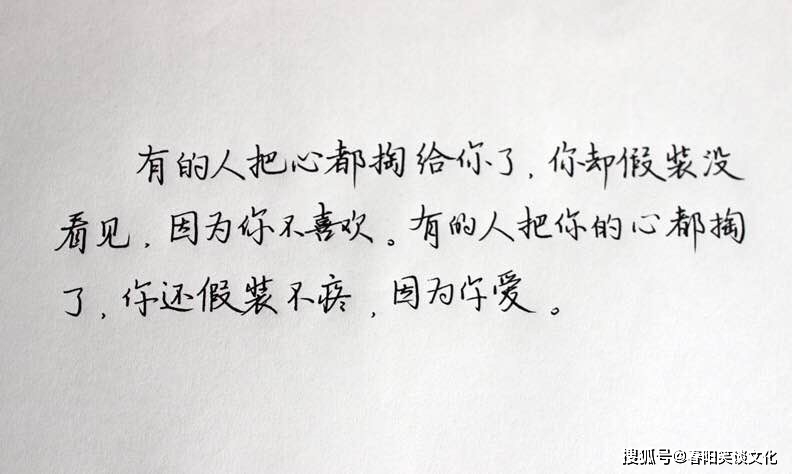 有的人把心都掏给你了，你却假装没
看见，因为你不喜欢。有的人把你的心都掏
了，你还假装不疼，因为你爱。
搜狐号@春阳笑谈文化